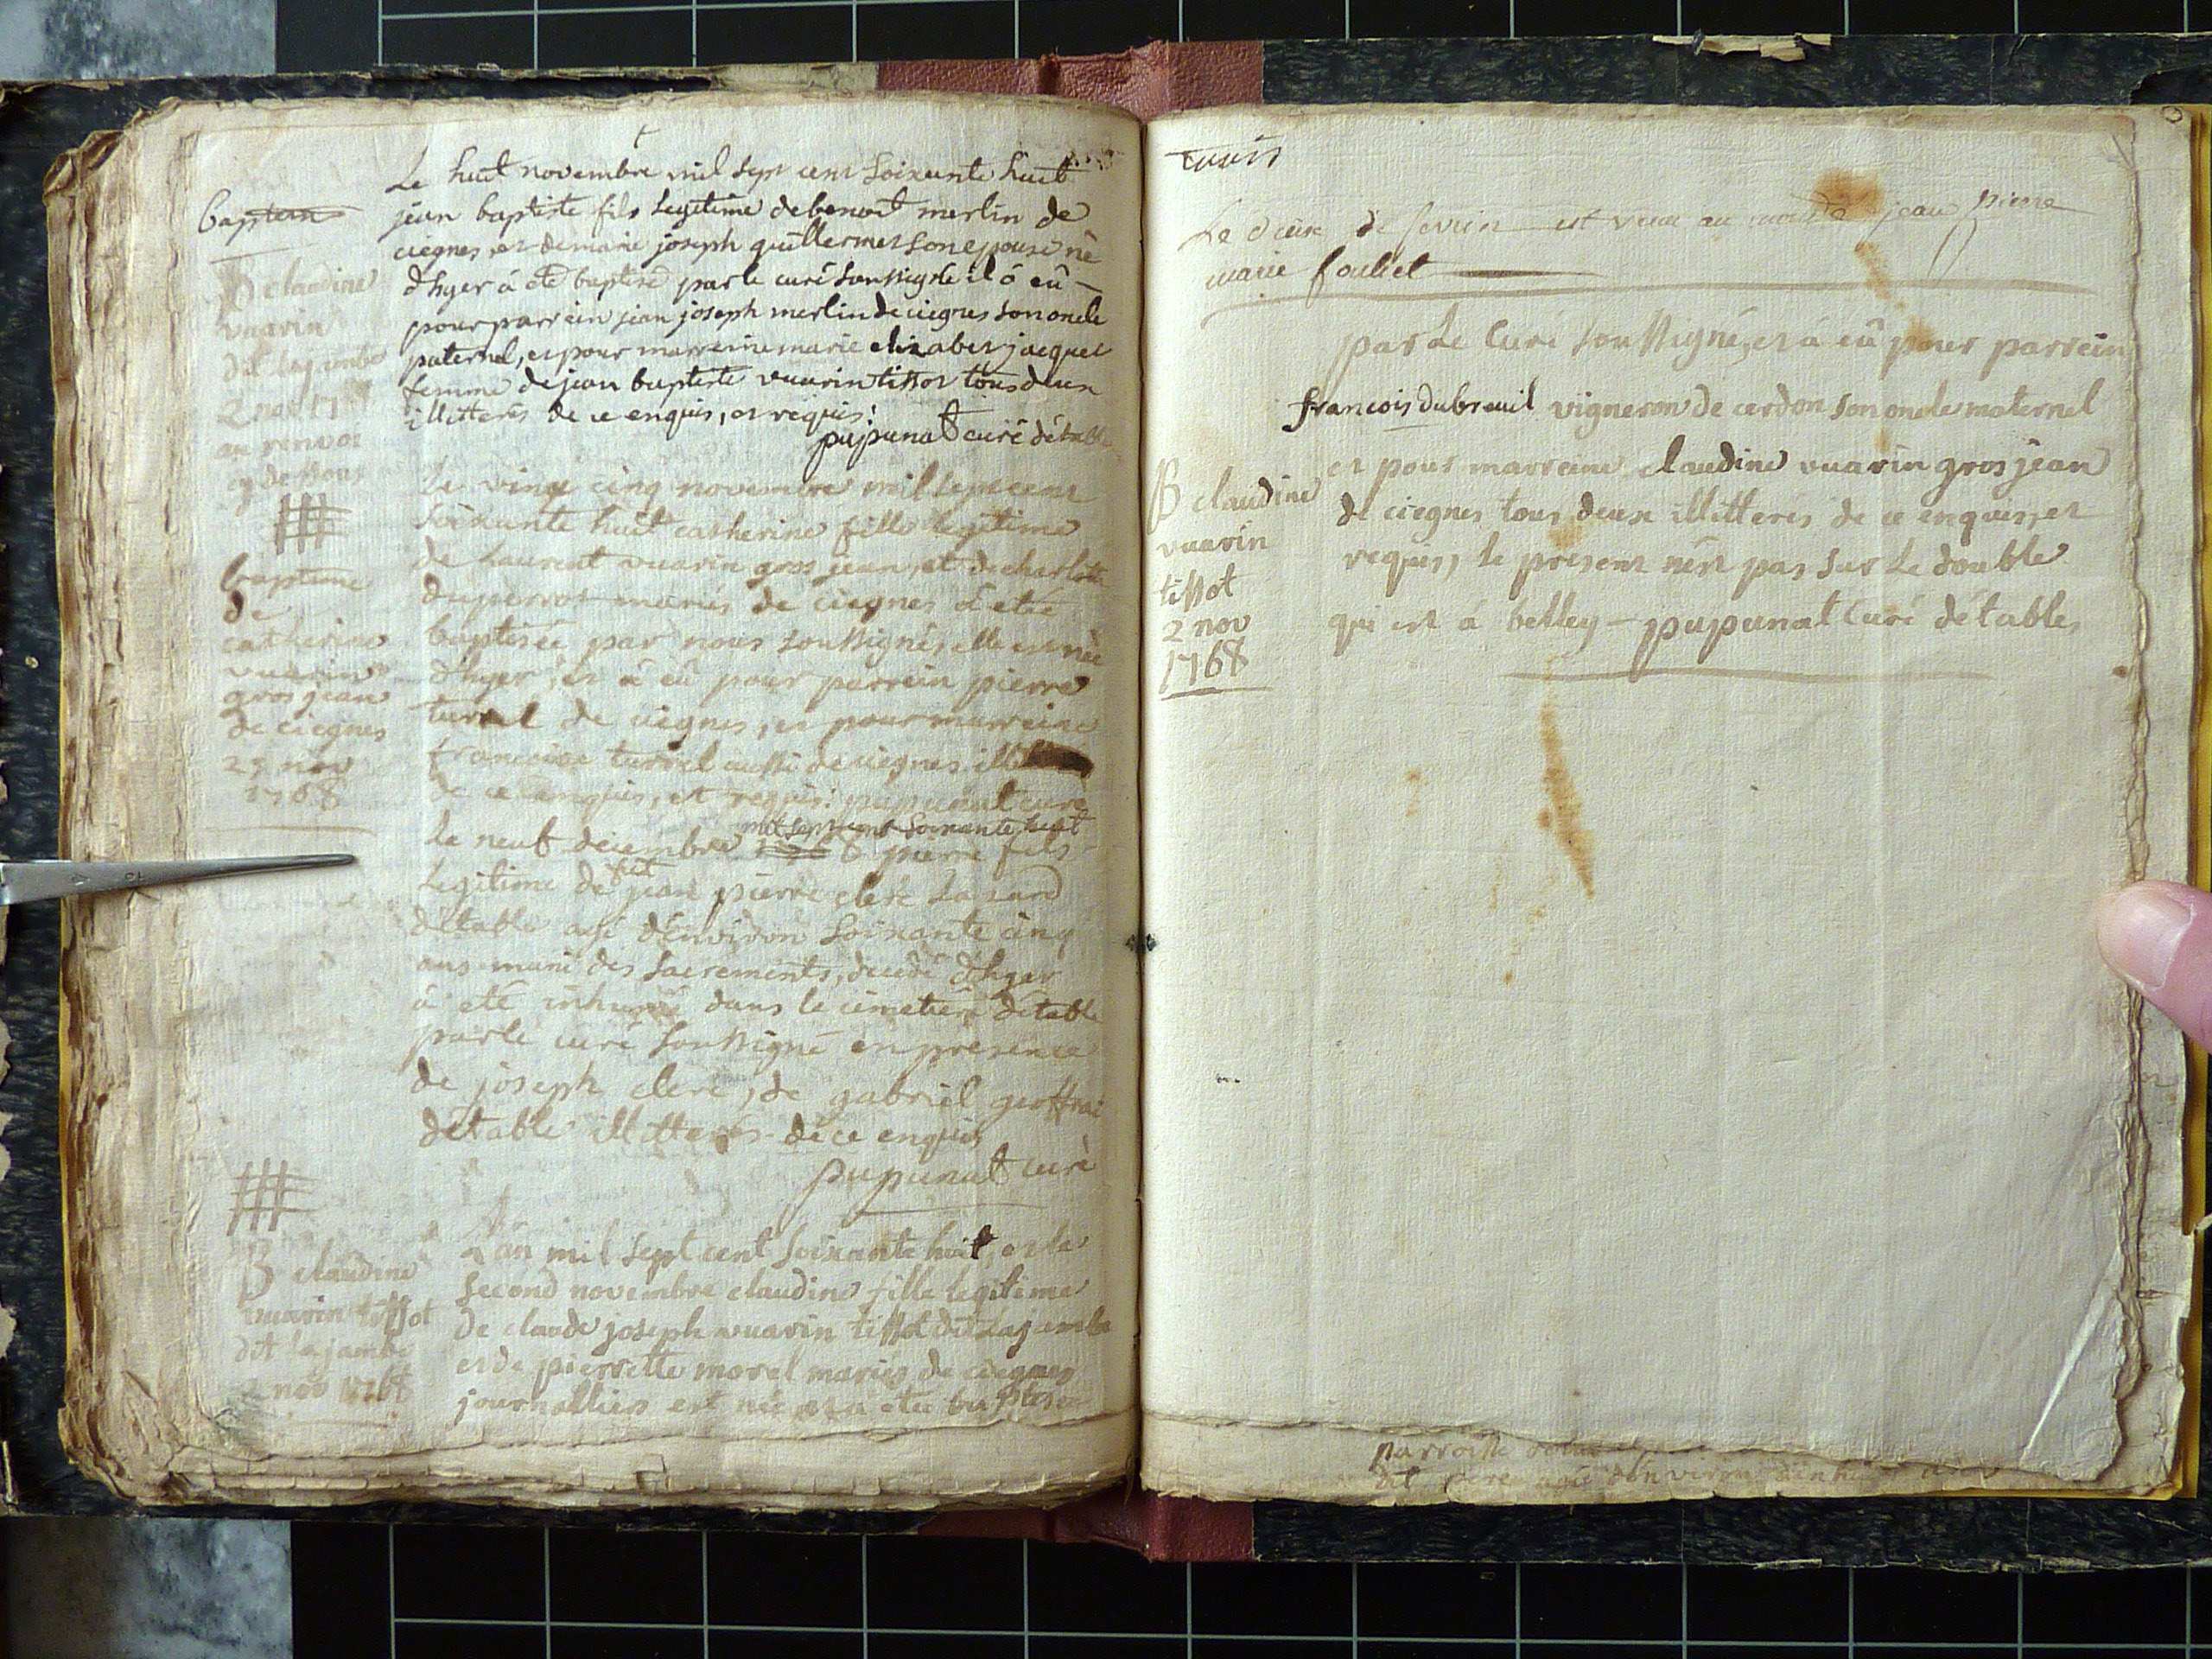 Le huit novembre mil sept cent soixante huit
baptem
jean baptiste fils legitime de benoit merlin de
ciegnes, et de marie joseph guillermet son epouse né
d'hyer á eté baptisé par le curé soussigné il á eû
pour parrein jean joseph merlin de ciegnes son oncle
paternel, et pour marreine marie elizabet jacquet
femme de jean baptiste vuarin tissot tous deux
illitterés de ce enquis, et requis:
pupunat curé détable
B claudine
vuarin
dit lajambe
2 nov 1768
au renvoi
cy dessous
Le vingt cinq novembre mil sept cent
soixante huit catherine fille legitime
de Laurent vuarin gros jean, et de charlotte
duperrot mariés de ciegnes á etée
baptisée par nous soussigné, elle est née
d'hyer, et á eû pour parrein pierre
turrel de ciegnes, et pour marreine
francoise turrel aussi de ciegnes
de ce enquis, et requis: pupunat curé
baptême
de
catherine
vuarin
gros jean
de ciegnes
25 nov
1768
mil sept cent soixante huit
Le neuf decembre pierre fils
Legitime de fut jean pierre clerc
détable agé d'environ soixante cinq
ans muni des sacrements, decedé d'hyer
á eté inhumé dans le cimetiere détable
par le curé soussigné en presence
de joseph clerc, de gabriel geoffrai
détable illitterés de ce enquis
pupunat curé
B claudine
vuarin tissot
dit la jambe
2 nov 1768
L'an mil sept cent soixante huit, et le
second novembre claudine fille legitime
de claude joseph vuarin tissot dit Lajambe
et de pierrette morel mariés de ciegnes
journalliers est née et a etée baptisée
Le de est venu au monde jean pierre
marie
par Le Curé soussigné, et á eû pour parrein
francois dubreuil vigneron de cerdon son oncle maternel
et pour marreine claudine vuarin gros jean
de ciegnes tous deux illitterés de ce enquis, et
requis, le present n'est pas sur Le double
qui est á belley - pupunat Curé détable
B claudine
vuarin
tissot
2 nov
1768
parroisse
dit agé d'environ